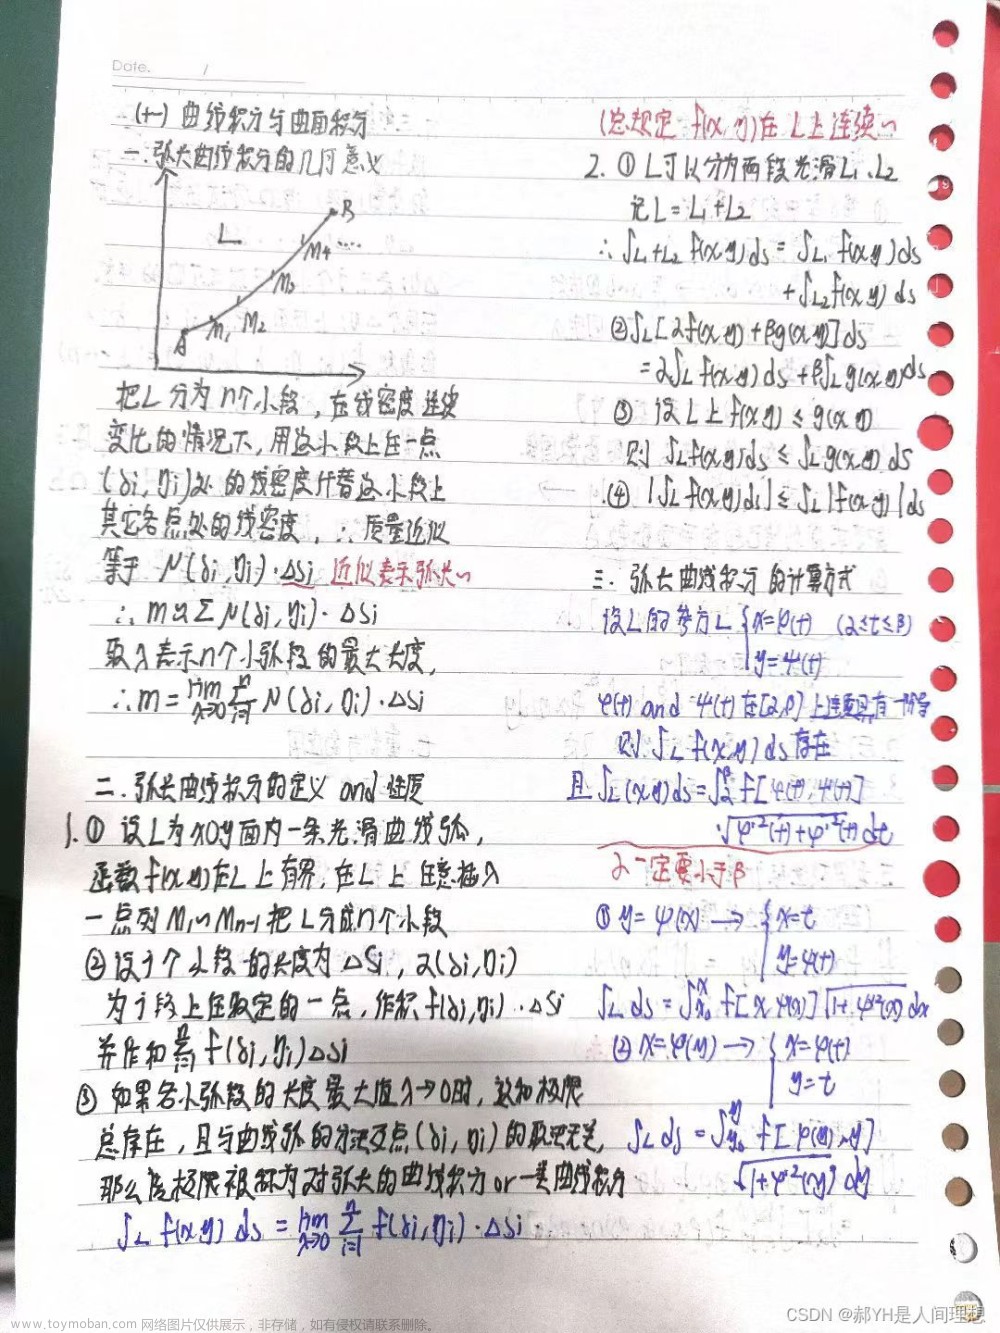 Date. /
(十一) 曲线积分与曲面积分
一. 弧长曲线积分的几何意义
B
L
M4 ....
M3
M2
M1
A
把L分为n个小段, 在线密度连续
变化的情况下, 用这小段上任一点
(δi, ηi)处的线密度代替这小段上
其它各点处的线密度, ∴ 质量近似
等于 μ(δi, ηi)·ΔSi 近似表示弧长~
∴ m≈Σμ(δi, ηi)·ΔSi
取λ表示n个小弧段的最大长度,
∴ m = lim λ→0 Σ i=1 n μ(δi, ηi)·ΔSi
二. 弧长曲线积分的定义 and 性质
1. ① 设L为xOy面内一条光滑曲线弧,
函数f(x,y)在L上有界, 在L上任意插入
一点列M1~Mn-1把L分成n个小段
② 设i个小段的长度为ΔSi, 2(δi, ηi)
为i段上任取定的一点, 作积f(δi,ηi)·ΔSi
并作和 Σ i=1 n f(δi, ηi)ΔSi
③ 如果各小弧段的长度最大值λ→0时, 这和极限
总存在, 且与曲线弧的分法及点(δi, ηi)的取法无关,
那么此极限被称为对弧长的曲线积分or一类曲线积分
∫L f(x,y) ds = lim λ→0 Σ i=1 n f(δi, ηi)·ΔSi
(总规定 f(x,y)在L上连续~
2. ① L可以分为两段光滑L1、L2
记L=L1+L2
∴ ∫L1+L2 f(x,y)ds = ∫L1 f(x,y)ds
+∫L2 f(x,y) ds
② ∫L[αf(x,y)+βg(x,y)]ds
=α∫L f(x,y)ds+β∫L g(x,y)ds
③ 设L上f(x,y)≤g(x,y)
则∫L f(x,y)ds≤∫L g(x,y)ds
④ |∫L f(x,y)ds|≤∫L|f(x,y)|ds
三. 弧长曲线积分的计算方式
设L的参方L {x=φ(t) (α≤t≤β)
y=ψ(t)
φ(t) and ψ(t)在[α,β]上连续且有一阶导
则∫L f(x,y)ds存在
且∫L(x,y)ds=∫α β f[φ(t),ψ(t)]
·√φ'²(t)+ψ'²(t) dt
α一定要小于β
① y=ψ(x) → {x=t
y=ψ(t)
∫L ds = ∫x0 x f[x,ψ(x)]√1+ψ'²(x) dx
② x=φ(y) → {x=φ(t)
y=t
∫L ds = ∫y0 y f[φ(y),y]
√1+φ'²(y) dy
www.toymoban.com 网络图片仅供展示,非存储,如有侵权请联系删除。
CSDN @郝YH是人间理想